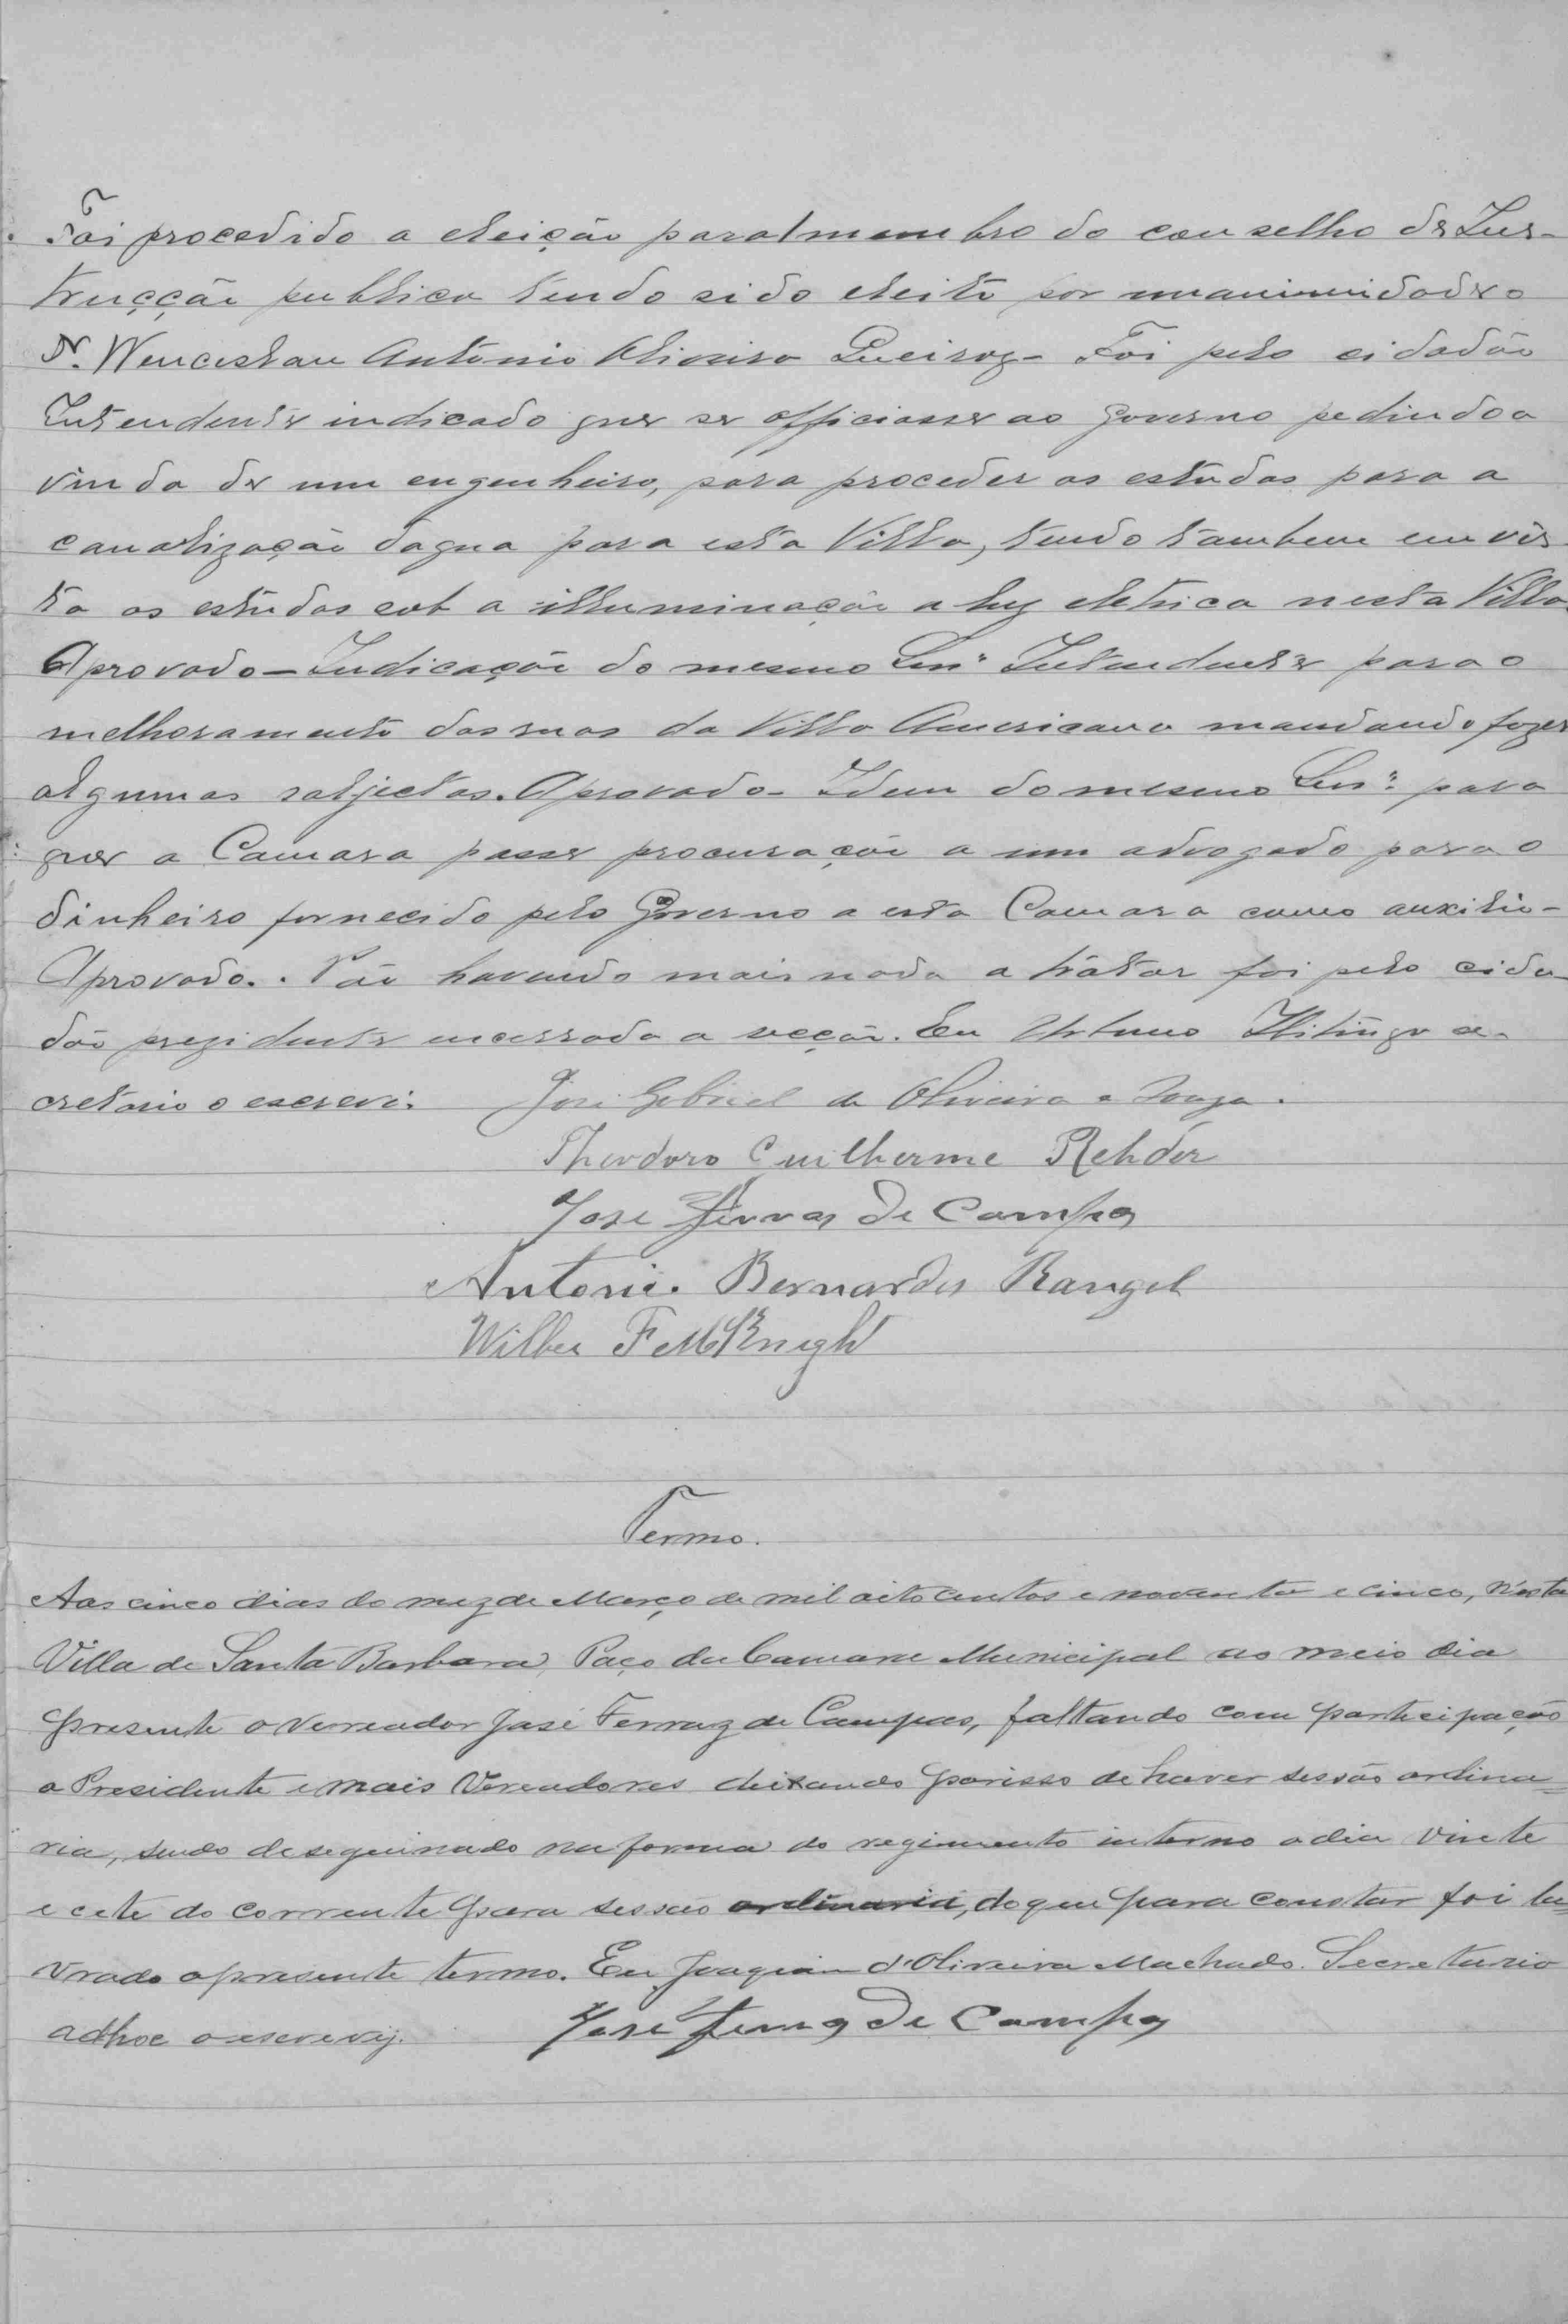 Foi procedido a eleição para 1 membro do conselho de Ins-
trucção publica tendo sido eleito por unanimidade o
Dr. Wenceslau Antonio Oliveira Queiroz - Foi pelo cidadão
Intendente indicado que se officiasse ao Governo pedindo a
vinda de um engenheiro, para proceder os estudos para a
canalização dagua para esta Villa, tendo tambem em vis-
ta os estudos sob a illuminação a luz eletrica nesta Villa.
Aprovado - Indicação do mesmo Snr. Intendente para o
melhoramento das ruas da Villa Americana mandando fazer
algumas sargjetas. Aprovado - Idem do mesmo Snr. para
que a Camara passe procuração a um advogado para o
dinheiro fornecido pelo Governo a esta Camara como auxilio -
Aprovado. Não havendo mais nada a tratar foi pelo cida-
dão prezidente encerrada a secção. Eu Arthuro se-
cretario o escrevi.
José Gabriel de Oliveira e Souza.
Theodoro Guilherme Rehder
Jose Ferraz de Campos
Antonio Bernardes Rangel
Wilber F McKnight
Termo.
Aos cinco dias do mez de Março de mil oito centos e noventa e cinco, n'esta
Villa de Santa Barbara, Paço da Camara Municipal ao meio dia
presente o Vereador José Ferraz de Campos, faltando com participação
o Presidente e mais Vereadores deixando por isso de haver sessão ordina=
ria, sendo deseguinado na forma do regimento interno o dia vinte
e cete do corrente para sessão ordinaria, do que para constar foi la=
vrado o presente termo. Eu Joaquim d'Oliveira Machado. Secretario
adhoc o escrevij.
Jose Ferraz de Campos